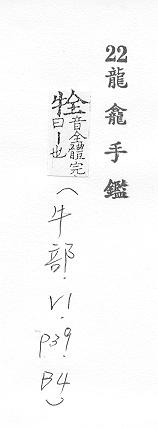 22龍龕手鑑
牷音全體完
牛曰丨也
(牛部.V1.P39.B4)